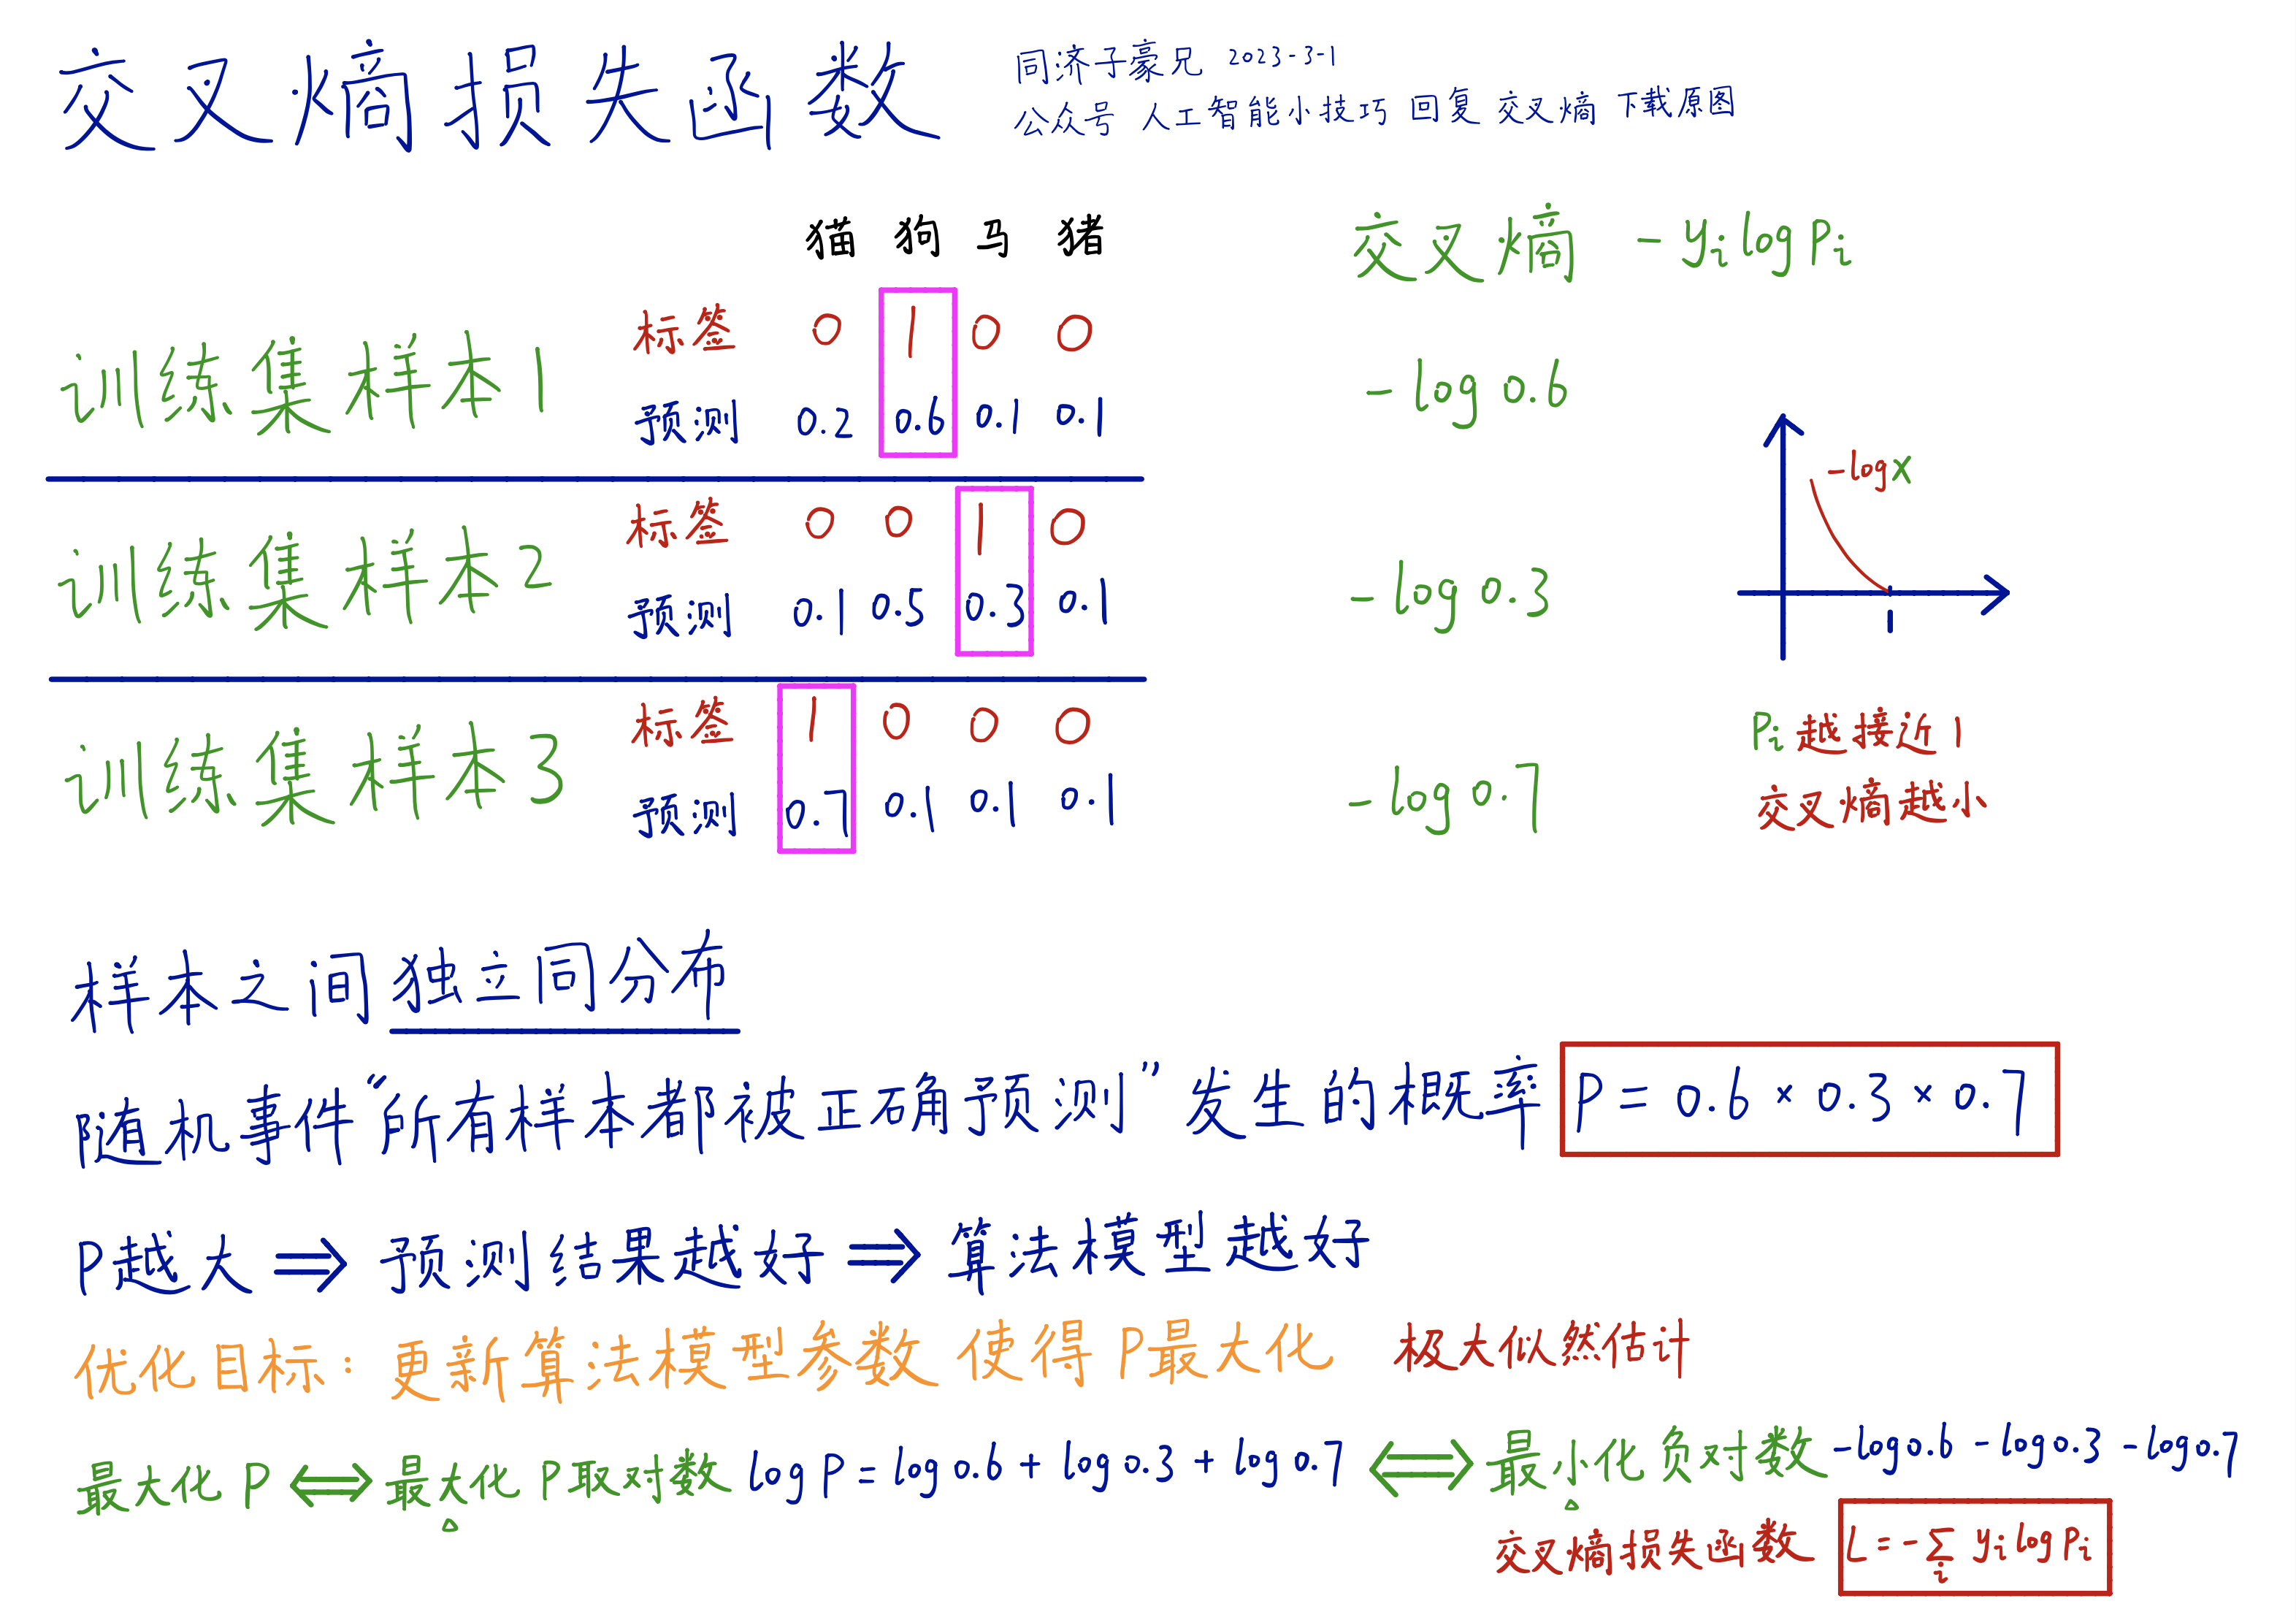 交叉熵损失函数
同济子豪兄 2023-3-1
公众号 人工智能小技巧 回复 交叉熵 下载原图
猫 狗 马 猪
交叉熵 -yᵢlogPᵢ
训练集样本1
标签 0 1 0 0
预测 0.2 0.6 0.1 0.1
-log0.6
训练集样本2
标签 0 0 1 0
预测 0.1 0.5 0.3 0.1
-log0.3
训练集样本3
标签 1 0 0 0
预测 0.7 0.1 0.1 0.1
-log0.7
-logx
1
Pᵢ越接近1
交叉熵越小
样本之间独立同分布
随机事件“所有样本都被正确预测”发生的概率 P = 0.6 × 0.3 × 0.7
P越大 ⇒ 预测结果越好 ⇒ 算法模型越好
优化目标: 更新算法模型参数 使得 P最大化 极大似然估计
最大化 P ⇔ 最大化 P取对数 log P = log 0.6 + log 0.3 + log 0.7 ⇔ 最小化负对数 -log0.6 - log0.3 - log0.7
交叉熵损失函数 L = -∑ᵢ yᵢ log Pᵢ